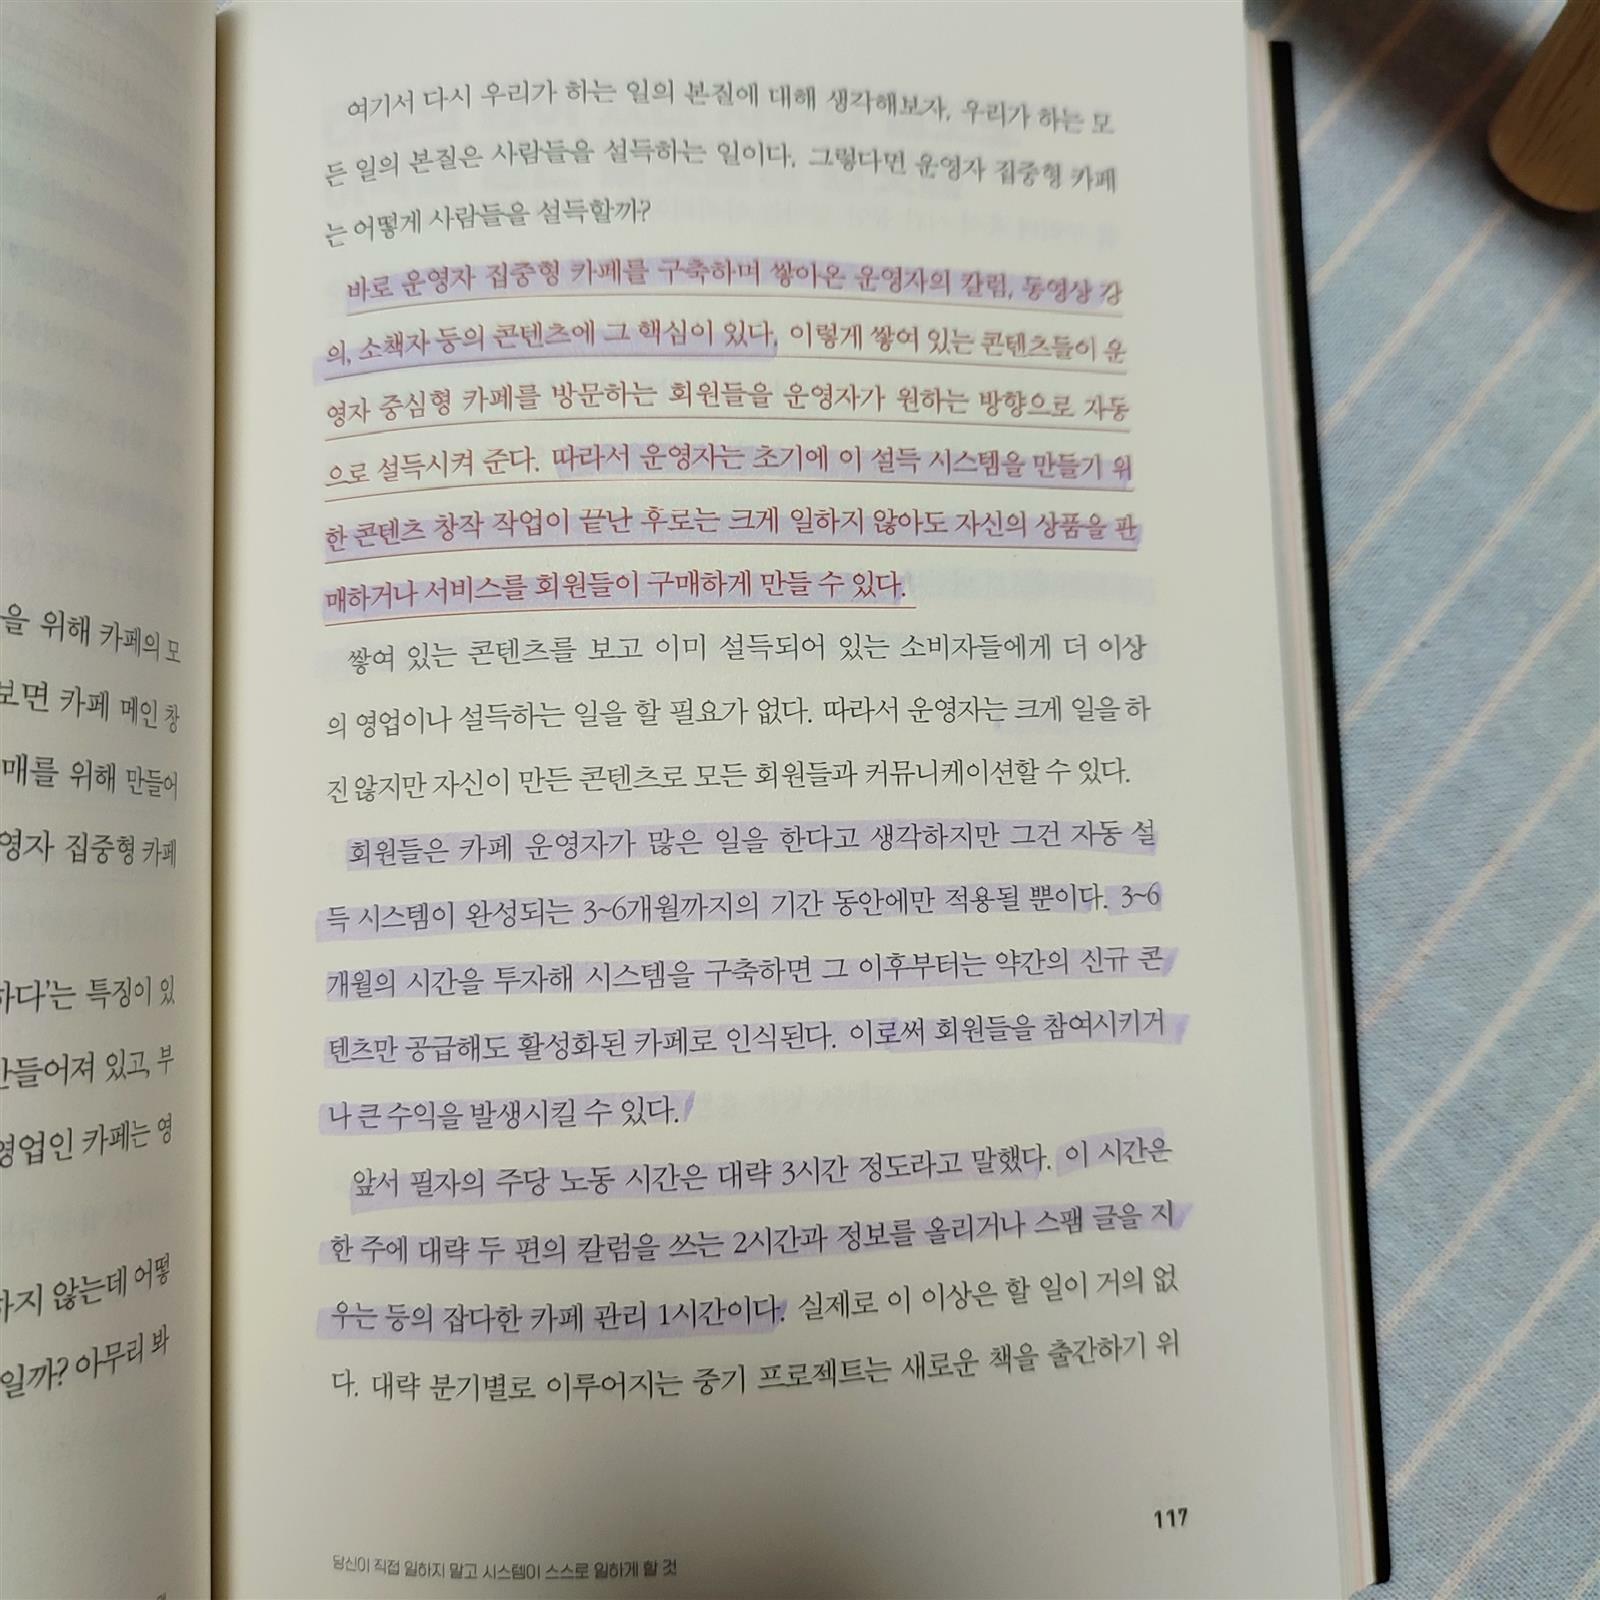 을 위해 카페의 모
보면 카페 메인 창
매를 위해 만들어
영자 집중형 카페
하다'는 특징이 있
만들어져 있고, 부
영업인 카페는 영
하지 않는데 어떻
일까? 아무리 봐
여기서 다시 우리가 하는 일의 본질에 대해 생각해보자. 우리가 하는 모
든 일의 본질은 사람들을 설득하는 일이다. 그렇다면 운영자 집중형 카페
는 어떻게 사람들을 설득할까?
바로 운영자 집중형 카페를 구축하며 쌓아온 운영자의 칼럼, 동영상 강
의, 소책자 등의 콘텐츠에 그 핵심이 있다. 이렇게 쌓여 있는 콘텐츠들이 운
영자 중심형 카페를 방문하는 회원들을 운영자가 원하는 방향으로 자동
으로 설득시켜 준다. 따라서 운영자는 초기에 이 설득 시스템을 만들기 위
한 콘텐츠 창작 작업이 끝난 후로는 크게 일하지 않아도 자신의 상품을 판
매하거나 서비스를 회원들이 구매하게 만들 수 있다.
쌓여 있는 콘텐츠를 보고 이미 설득되어 있는 소비자들에게 더 이상
의 영업이나 설득하는 일을 할 필요가 없다. 따라서 운영자는 크게 일을 하
진 않지만 자신이 만든 콘텐츠로 모든 회원들과 커뮤니케이션할 수 있다.
회원들은 카페 운영자가 많은 일을 한다고 생각하지만 그건 자동 설
득 시스템이 완성되는 3~6개월까지의 기간 동안에만 적용될 뿐이다. 3~6
개월의 시간을 투자해 시스템을 구축하면 그 이후부터는 약간의 신규 콘
텐츠만 공급해도 활성화된 카페로 인식된다. 이로써 회원들을 참여시키거
나 큰 수익을 발생시킬 수 있다.
앞서 필자의 주당 노동 시간은 대략 3시간 정도라고 말했다. 이 시간은
한 주에 대략 두 편의 칼럼을 쓰는 2시간과 정보를 올리거나 스팸 글을 지
우는 등의 잡다한 카페 관리 1시간이다. 실제로 이 이상은 할 일이 거의 없
다. 대략 분기별로 이루어지는 중기 프로젝트는 새로운 책을 출간하기 위
117
당신이 직접 일하지 말고 시스템이 스스로 일하게 할 것